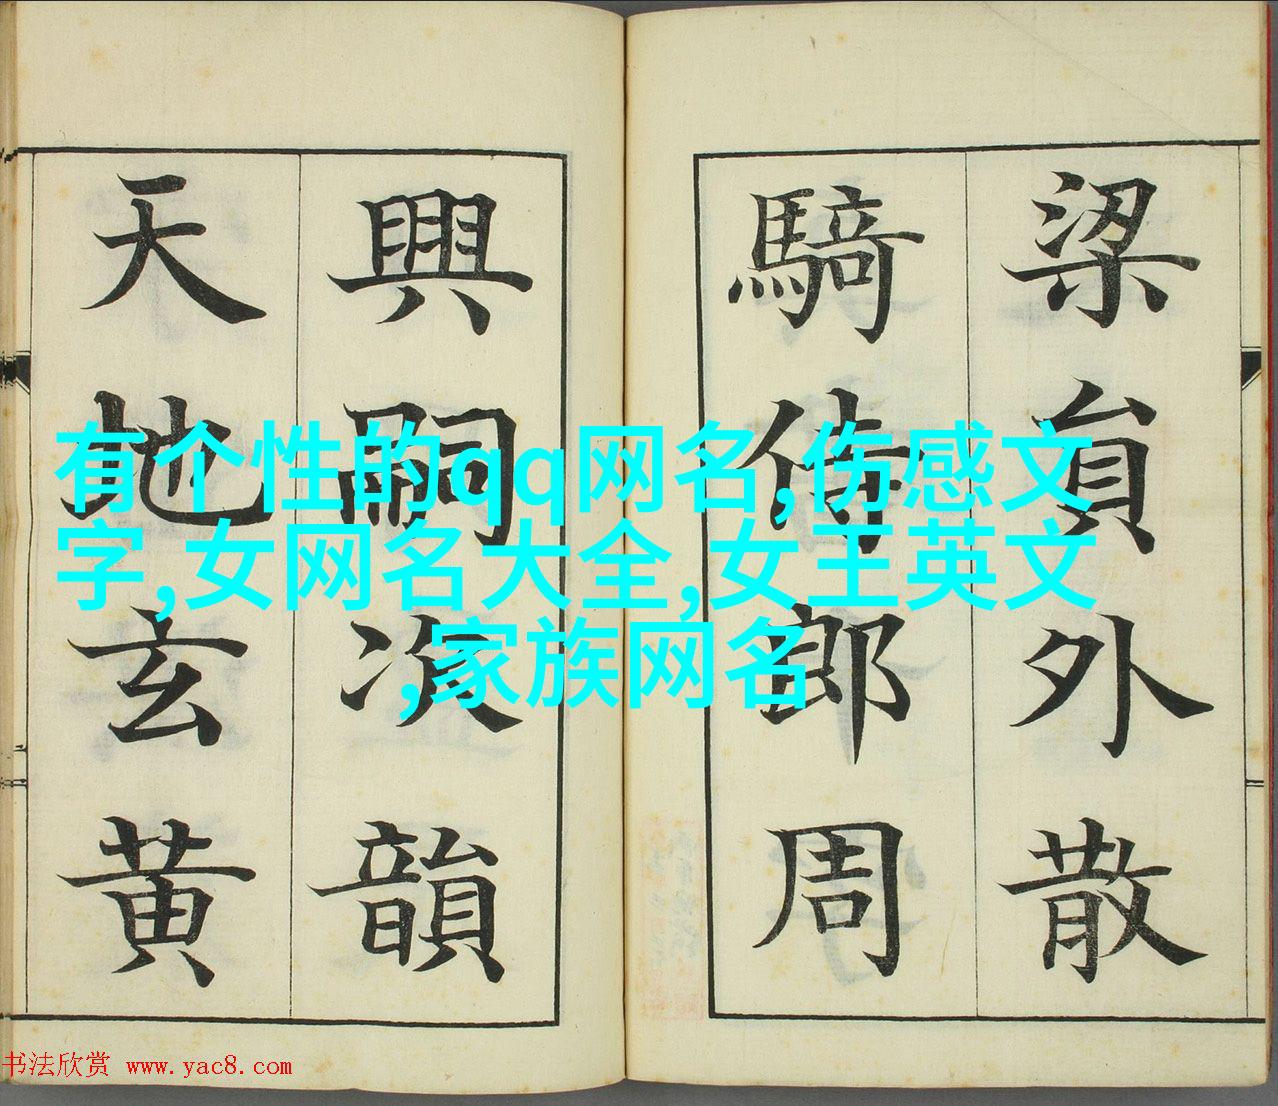 梁貟外散
騎侍郎周
興嗣次韻
天地玄黄
有个性的qq网名,伤感文
字,女网名大全,女王英文
,家族网名
书法欣赏 www.yac8.com